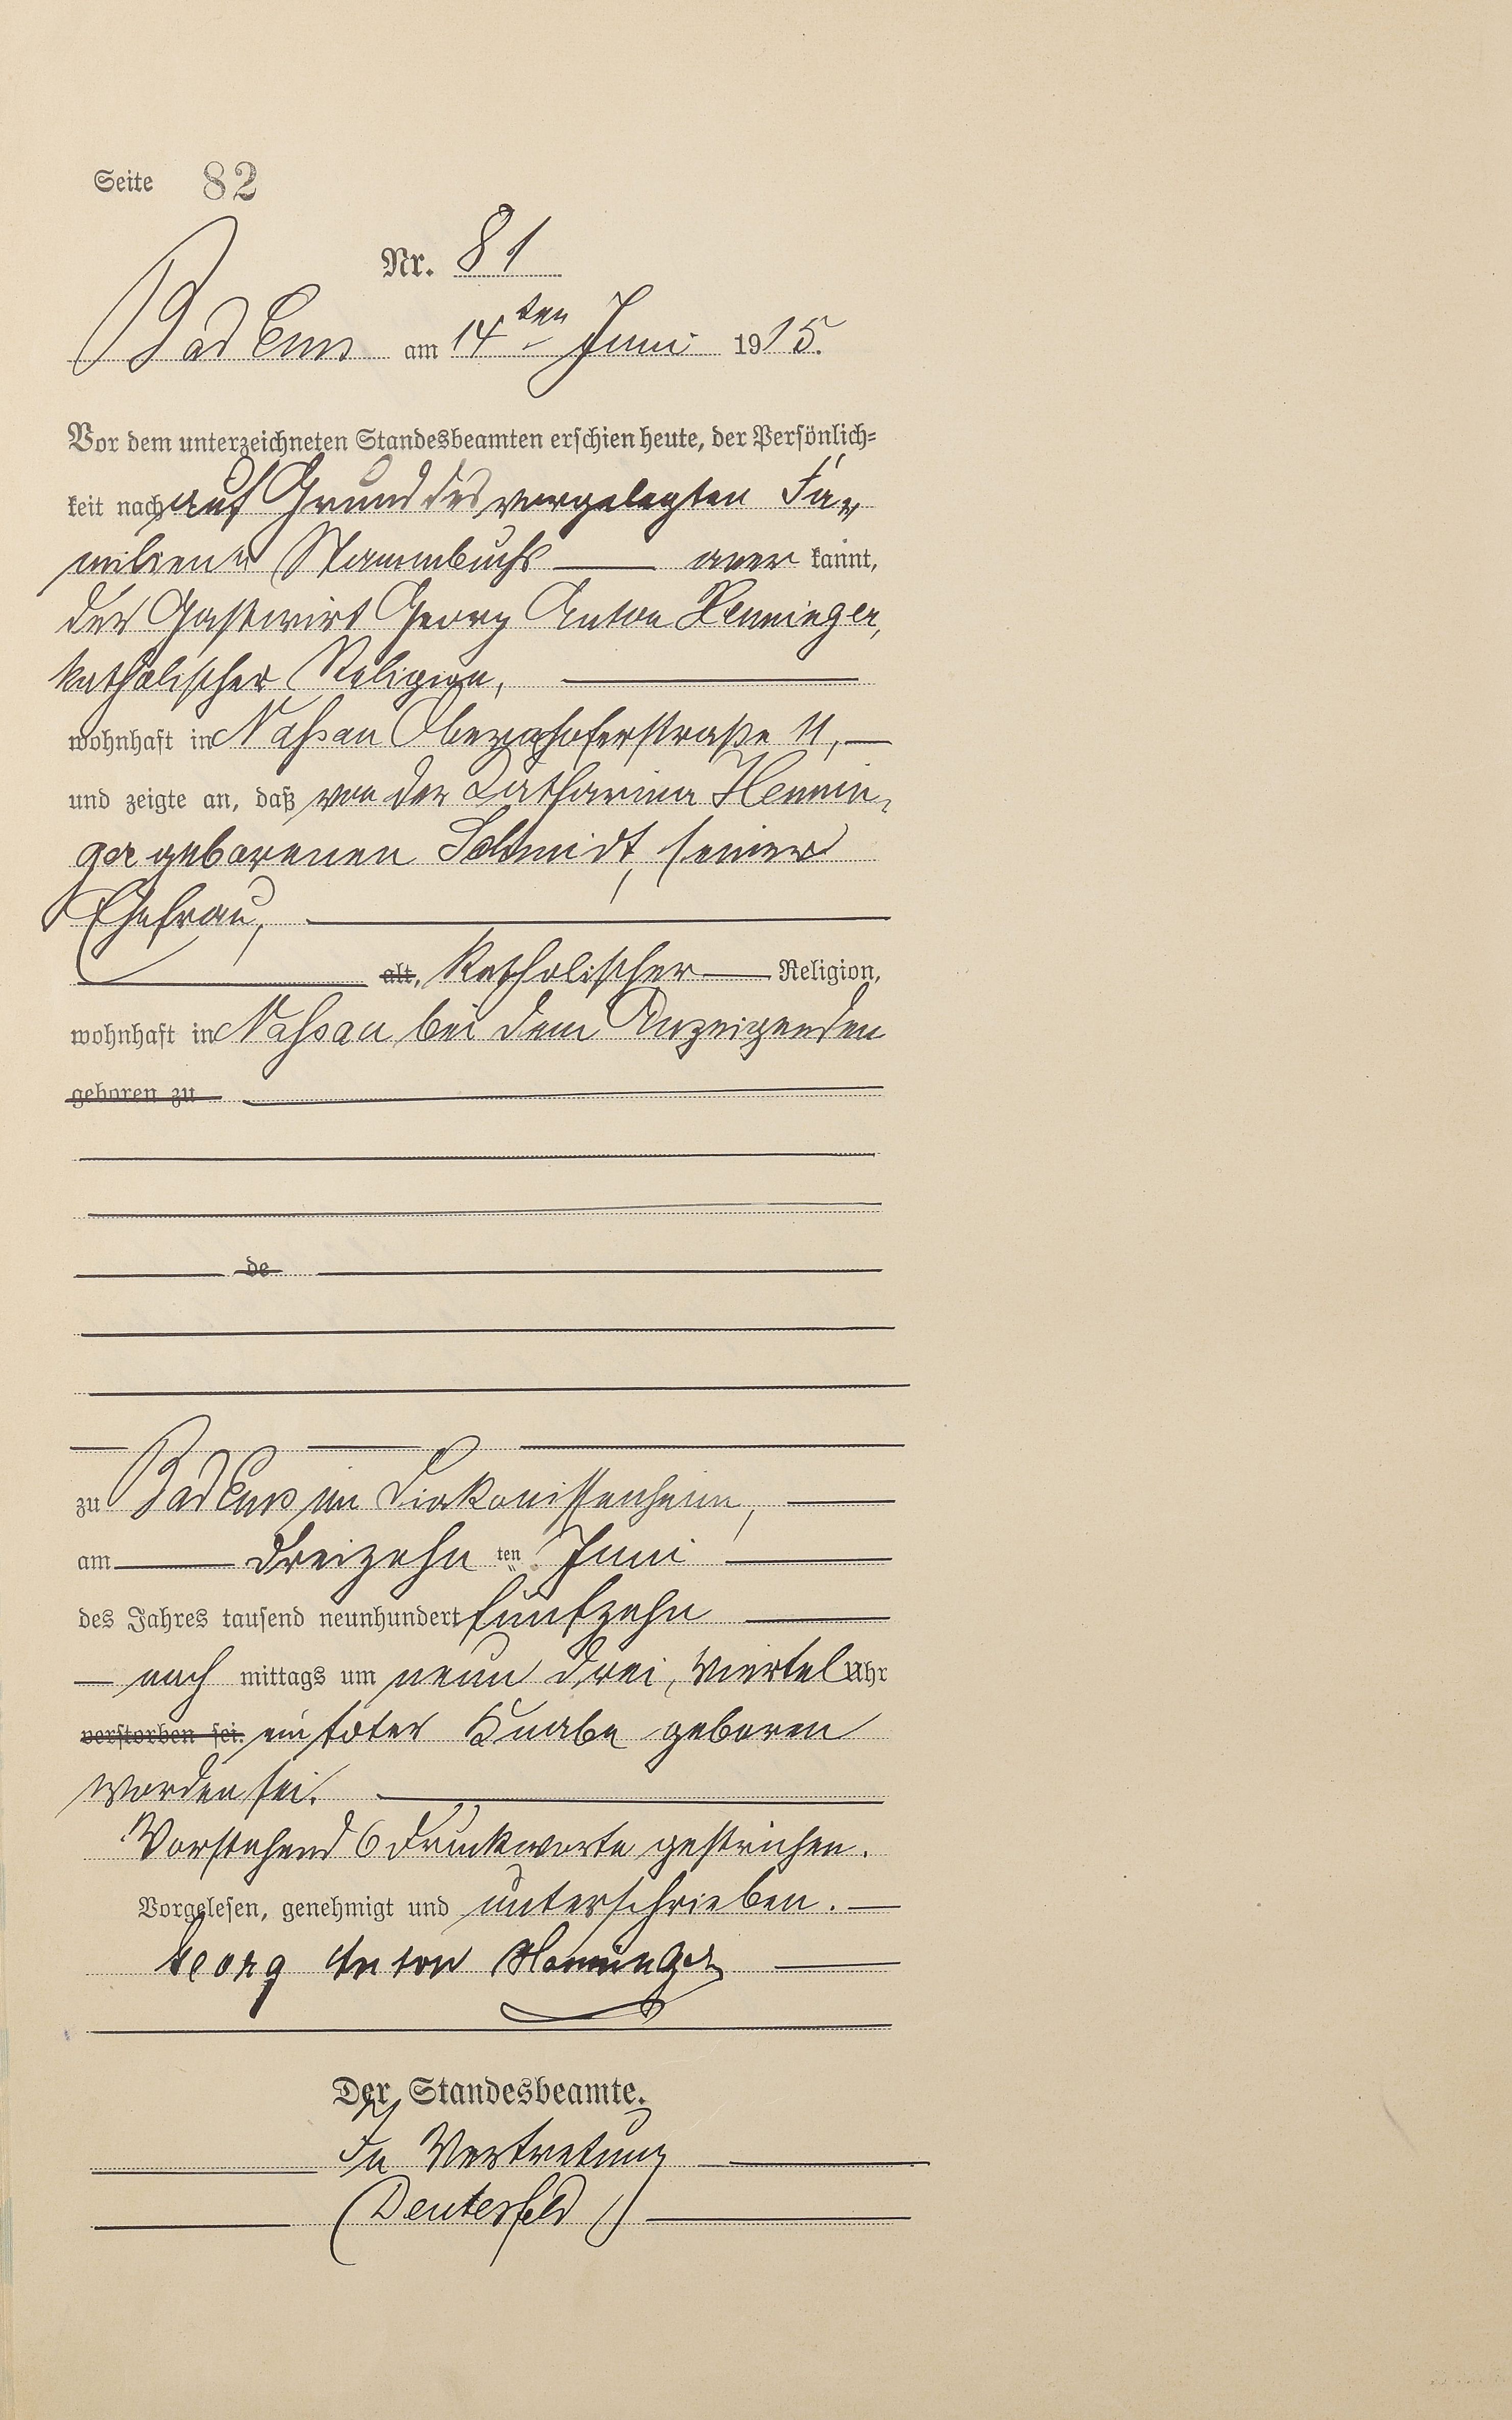 Seite 82
Nr. 81
Bad Ems am 14ten Juni 1915.
Vor dem unterzeichneten Standesbeamten erschien heute, der Persönlich=
keit nach auf Grund des vorgelegten Fa=
milien= Stammbuchs aner kannt,
der Gastwirt Georg Anton Henninger,
katholischer Religion,
wohnhaft in Nassau Obernhoferstraße 11,
und zeigte an, daß von der Katharina Hennin=
ger geborenen Schmidt, seiner
Ehefrau,
alt, katholischer Religion,
wohnhaft in Nassau bei dem Anzeigenden
geboren zu
de
zu Bad Ems im Diakonissenheim,
am dreizehn ten Juni
des Jahres tausend neunhundert fünfzehn
nach mittags um neun drei, viertel Uhr
verstorben sei. ein toter Knabe geboren
worden sei.
Vorstehend 6 Druckworte gestrichen.
Vorgelesen, genehmigt und unterschrieben.
Georg Anton Henninger
Der Standesbeamte.
In Vertretung